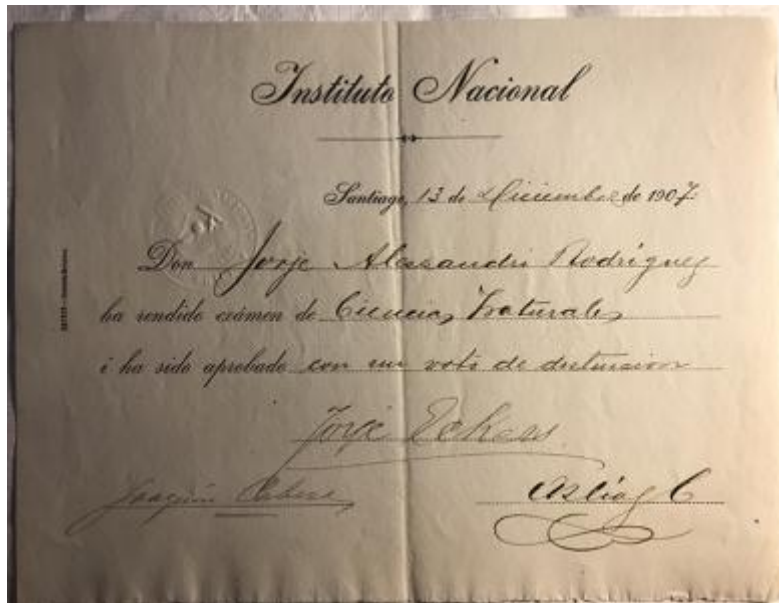 Instituto Nacional
Santiago, 13 de Diciembre de 1907.
Don Jorje Alessandri Rodríguez
ha rendido exámen de Ciencias Naturales
i ha sido aprobado con un voto de distincion
Jorje
Joaquin Cabezas